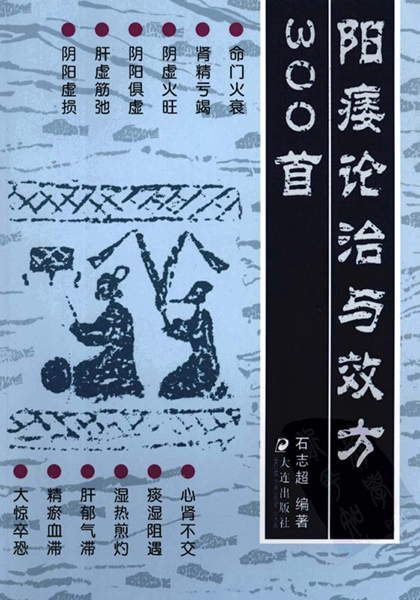 阳痿论治与效方
300首
石志超 编著
大连出版社
命门火衰
肾精亏竭
阴虚火旺
阴阳俱虚
肝虚筋弛
阴阳虚损
心肾不交
痰湿阻遏
湿热煎灼
肝郁气滞
精瘀血滞
大惊卒恐